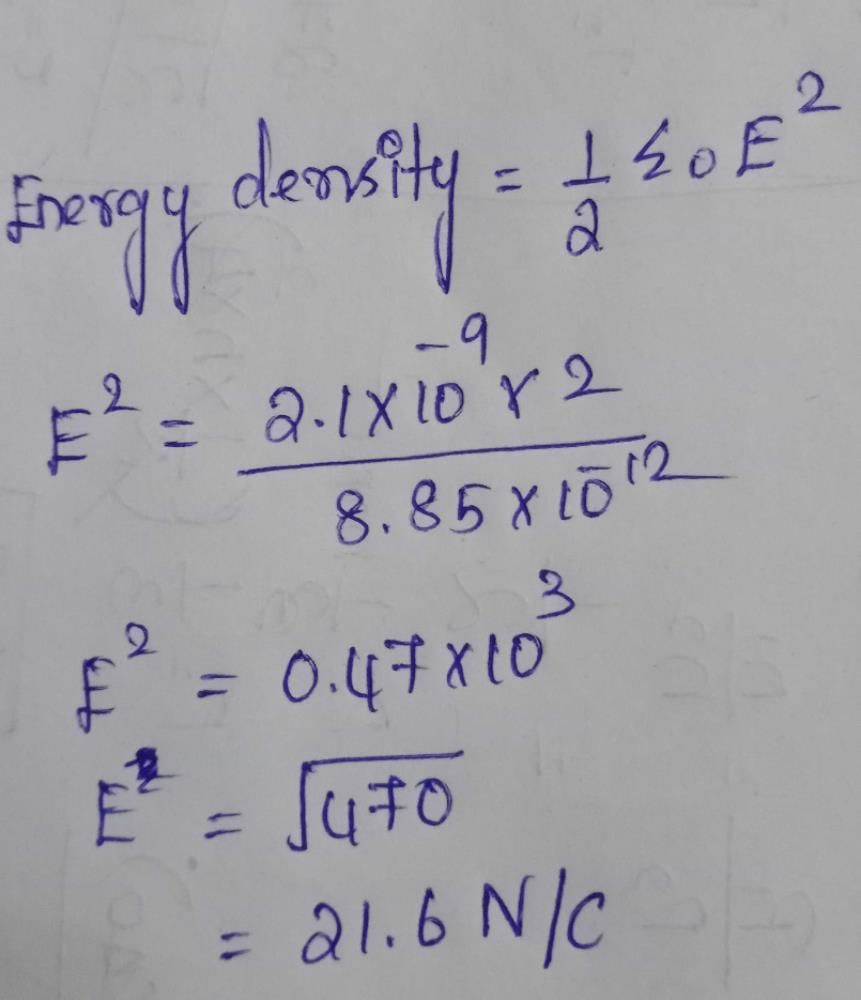 Energy density = 1/2 ε₀ E²
E² = 2.1×10⁻⁹ × 2 / 8.85×10⁻¹²
E² = 0.47×10³
E = √470
= 21.6 N/C